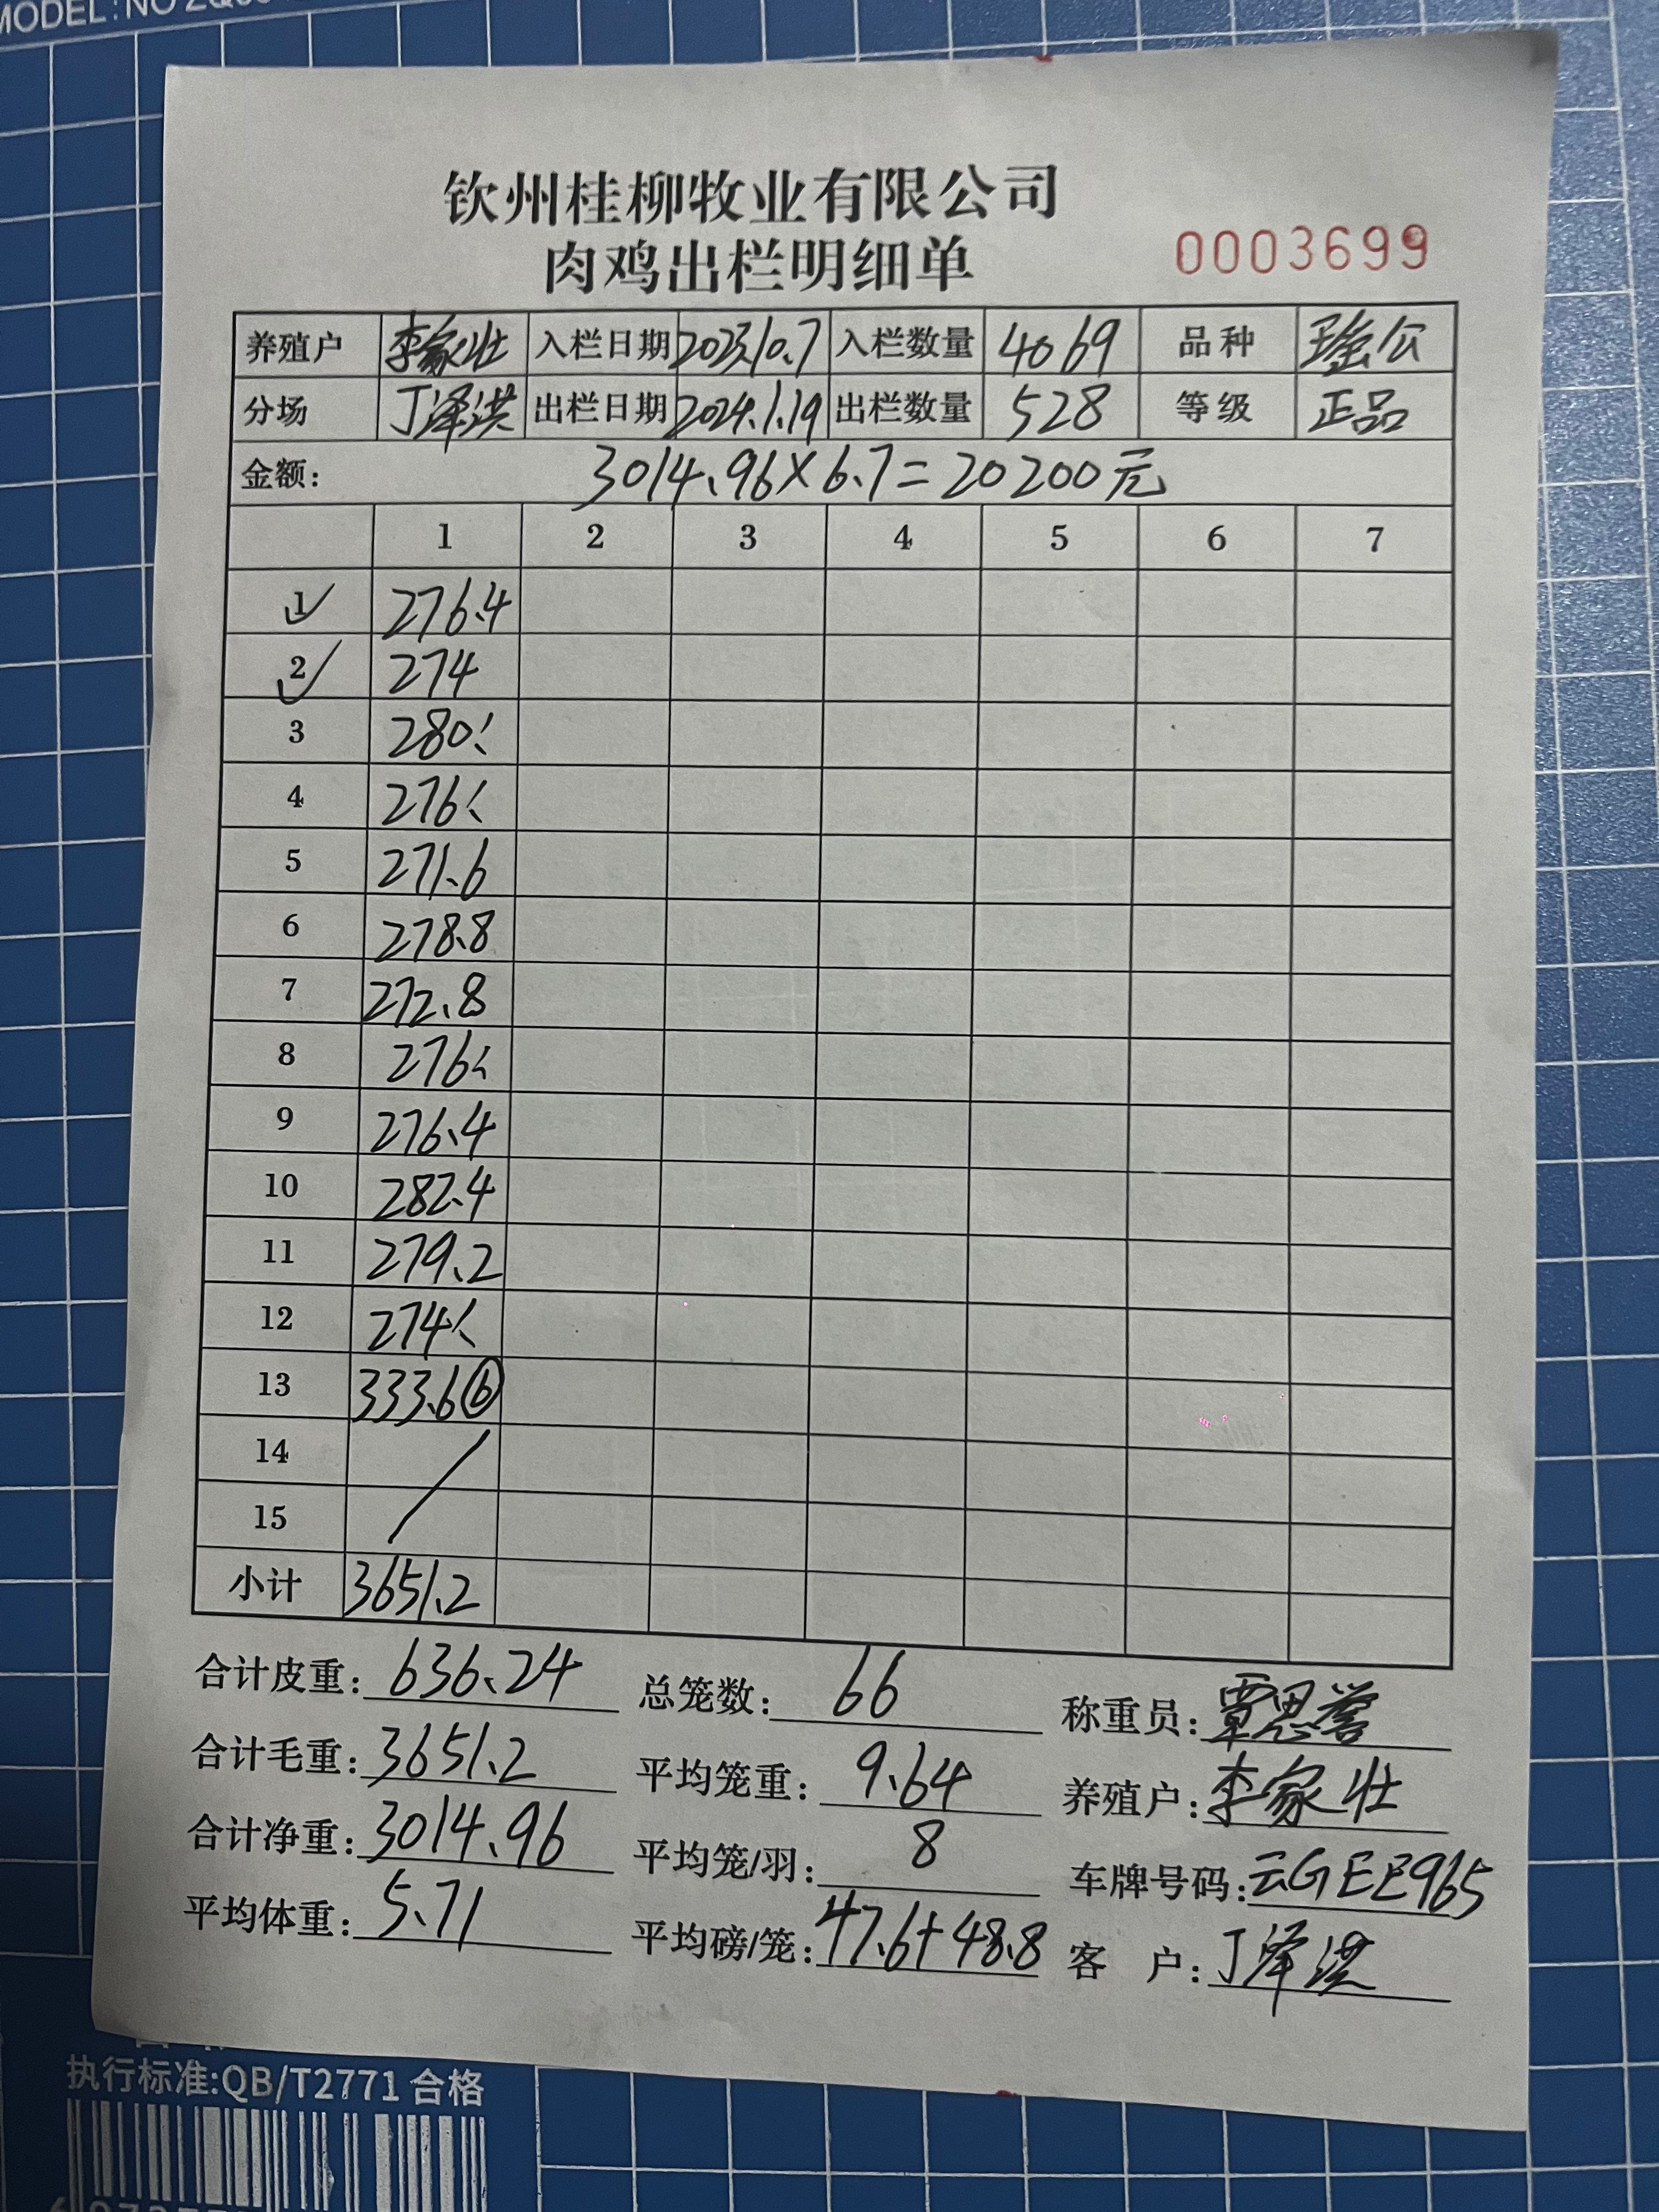 MODEL: NO
钦州桂柳牧业有限公司
肉鸡出栏明细单 0003699
养殖户 李家壮 入栏日期 2023.10.7 入栏数量 4069 品种 公
分场 丁泽洪 出栏日期 2024.1.19 出栏数量 528 等级 正品
金额: 3014.96×6.7=20200元
1 2 3 4 5 6 7
1 276.4
2 274
3 280
4 276
5 271.6
6 278.8
7 272.8
8 276
9 276.4
10 282.4
11 279.2
12 274
13 333.6 ⑥
14
15
小计 3651.2
合计皮重: 636.24 总笼数: 66 称重员: 覃思誉
合计毛重: 3651.2 平均笼重: 9.64 养殖户: 李家壮
合计净重: 3014.96 平均笼/羽: 8 车牌号码: 云GEE965
平均体重: 5.71 平均磅/笼: 47.6+48.8 客 户: 丁泽洪
执行标准:QB/T2771 合格